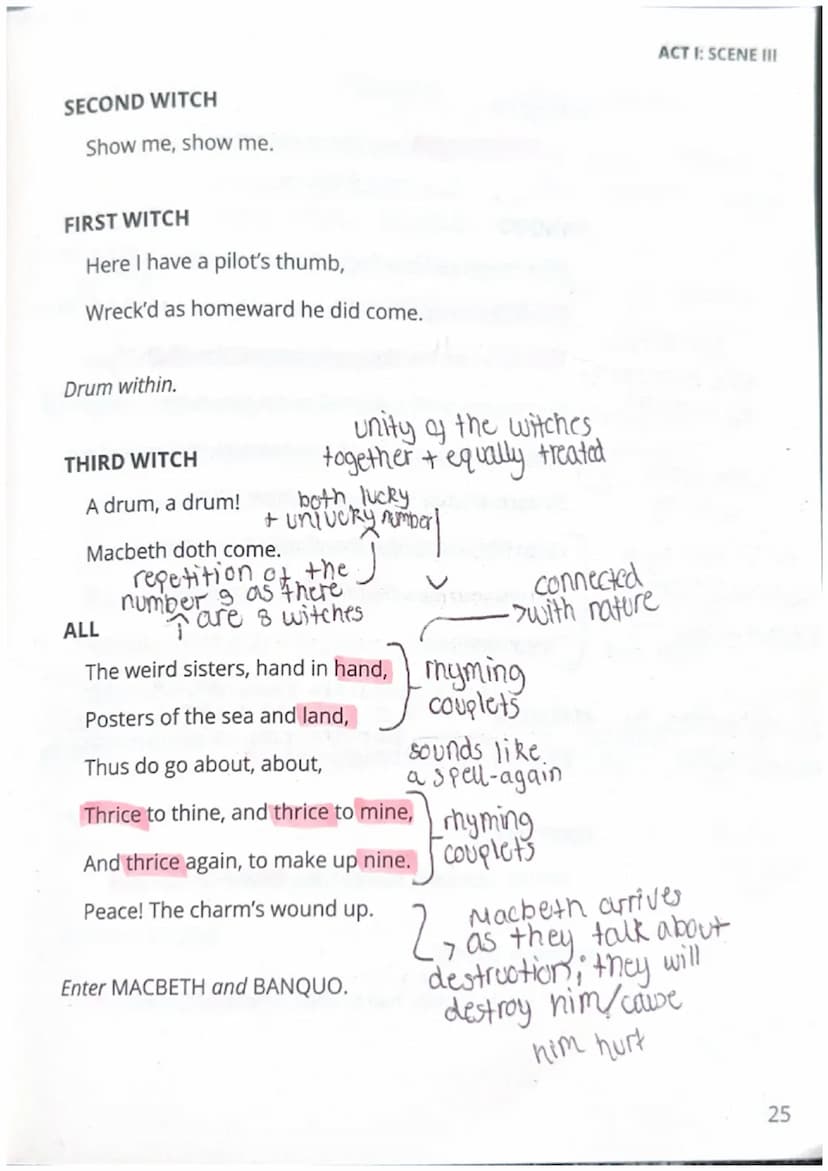 ACT I: SCENE III
SECOND WITCH
Show me, show me.
FIRST WITCH
Here I have a pilot's thumb,
Wreck'd as homeward he did come.
Drum within.
unity of the witches
together + equally treated
THIRD WITCH
A drum, a drum!
both lucky
+ unlucky number
Macbeth doth come.
repetition of the
number 9 as there
are 3 witches
connected
with nature
ALL
The weird sisters, hand in hand,
Posters of the sea and land,
rhyming
couplets
Thus do go about, about,
sounds like
a spell-again
Thrice to thine, and thrice to mine,
And thrice again, to make up nine.
rhyming
couplets
Peace! The charm's wound up.
Macbeth arrives
as they talk about
destruction; they will
destroy him/cause
him hurt
Enter MACBETH and BANQUO.
25